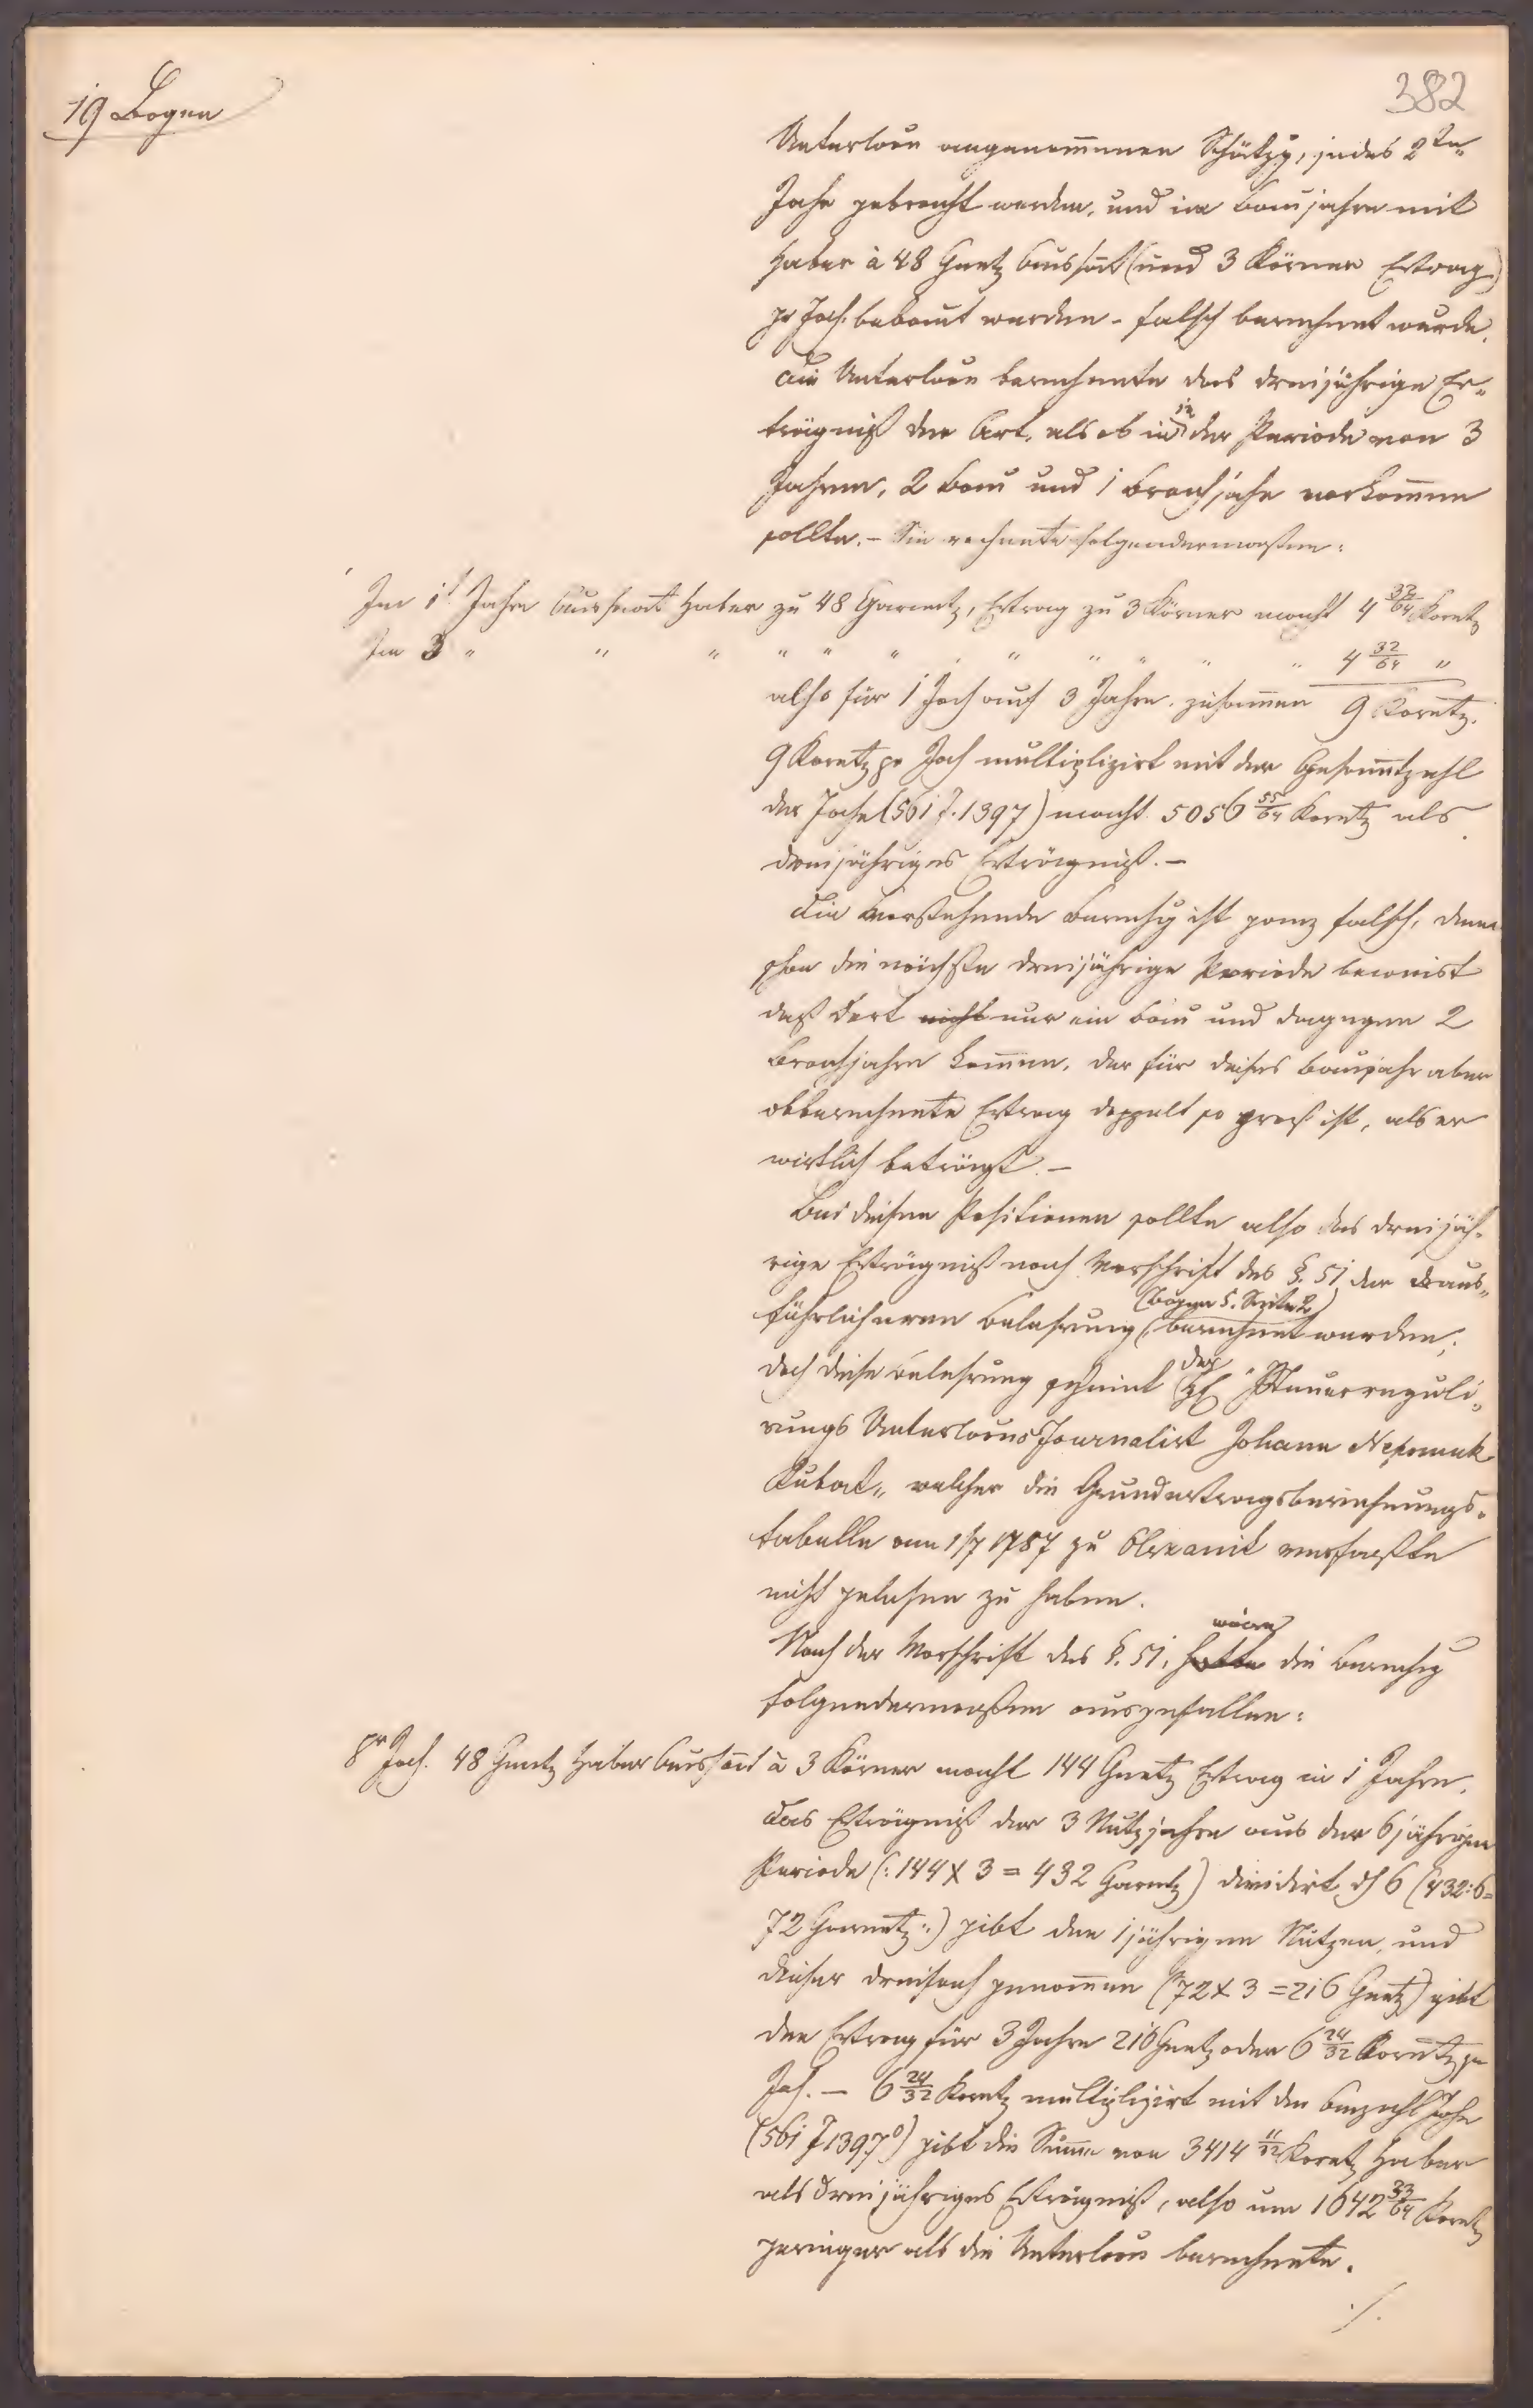 382
19 Bogen
Unterloõn angenom̅enen Schätzg, jedes 2te
Jahr gebracht werden, und im Baujahre mit
Haber à 48 Gnetz Aussaat (und 3 Körner Ertrag)
pr Joch bebaut werden - falsch berechnet wurde.
Die Unterloõn berechnete das dreijährige Er-
trägniß der Art, als ob in der Periode von 3
Jahren, 2 Bau und 1 Brachjahr vorkom̅en
sollte. - Sie rechnete folgendermaßen:
Im 1t Jahre Aussaat Haber zu 48 Garnetz, Ertrag zu 3 Körner macht 4 32/64 Koretz
Im 3 " " " " " " " " " " " 4 32/64 "
also für 1 Joch auf 3 Jahre zusam̅en 9 Koretz.
9 Koretz pr Joch multiplizirt mit der Gesam̅tzahl
der Joche (561 J. 1397) macht 5056 55/64 Koretz als
dreijähriges Erträgniß. -
Die vorstehende Berechg ist ganz falsch, denn
schon die nächste dreijährige Periode beweist
daß dort nicht nur ein Bau und dagegen 2
Brachjahre kom̅en, der für dieses Baujahr aber
obberechnete Ertrag doppelt so groß ist, als er
wirklich beträgt. -
Bei diesen Positionen sollte also das dreijäh-
rige Erträgniß nach Vorschrift des §. 51 der aus-
(Bogen 5. Seite 2)
führlicheren Belehrung berechnet werden;
doch diese Belehrung scheint der "Steuerreguli-
rungs Unterloõns Journalist Johann Nepomuk
Kubat" welcher die Grundertragsberechnungs-
tabelle am 1/7 1787 zu Olexanic verfaßte
nicht gelesen zu haben.
wäre
Nach der Vorschrift des §. 51, hätte die Berechg
folgendermaßen ausgefallen:
pr Joch. 48 Gnetz Haber Aussaat à 3 Körner macht 144 Gnetz Ertrag in 1 Jahre.
Das Erträgniß der 3 Nutzjahre aus der 6jährigen
Periode (: 144 X 3 = 432 Garnetz) dividirt dch 6 (432:6=
72 Garnetz :) gibt den 1jährigen Nutzen, und
dieser dreifach genom̅en (72 X 3 = 216 Gnetz) gibt
den Ertrag für 3 Jahre 216 Gnetz oder 6 24/32 Koretz pr
Joch. - 6 24/32 Koretz multiplizirt mit der Anzahl Joche
(561 J 1397°) gibt die Sum̅e von 3414 11/32 Koretz Haber
als dreijähriges Erträgniß, also um 1642 33/64 Koretz
geringer als die Unterloõn berechnete.
./.